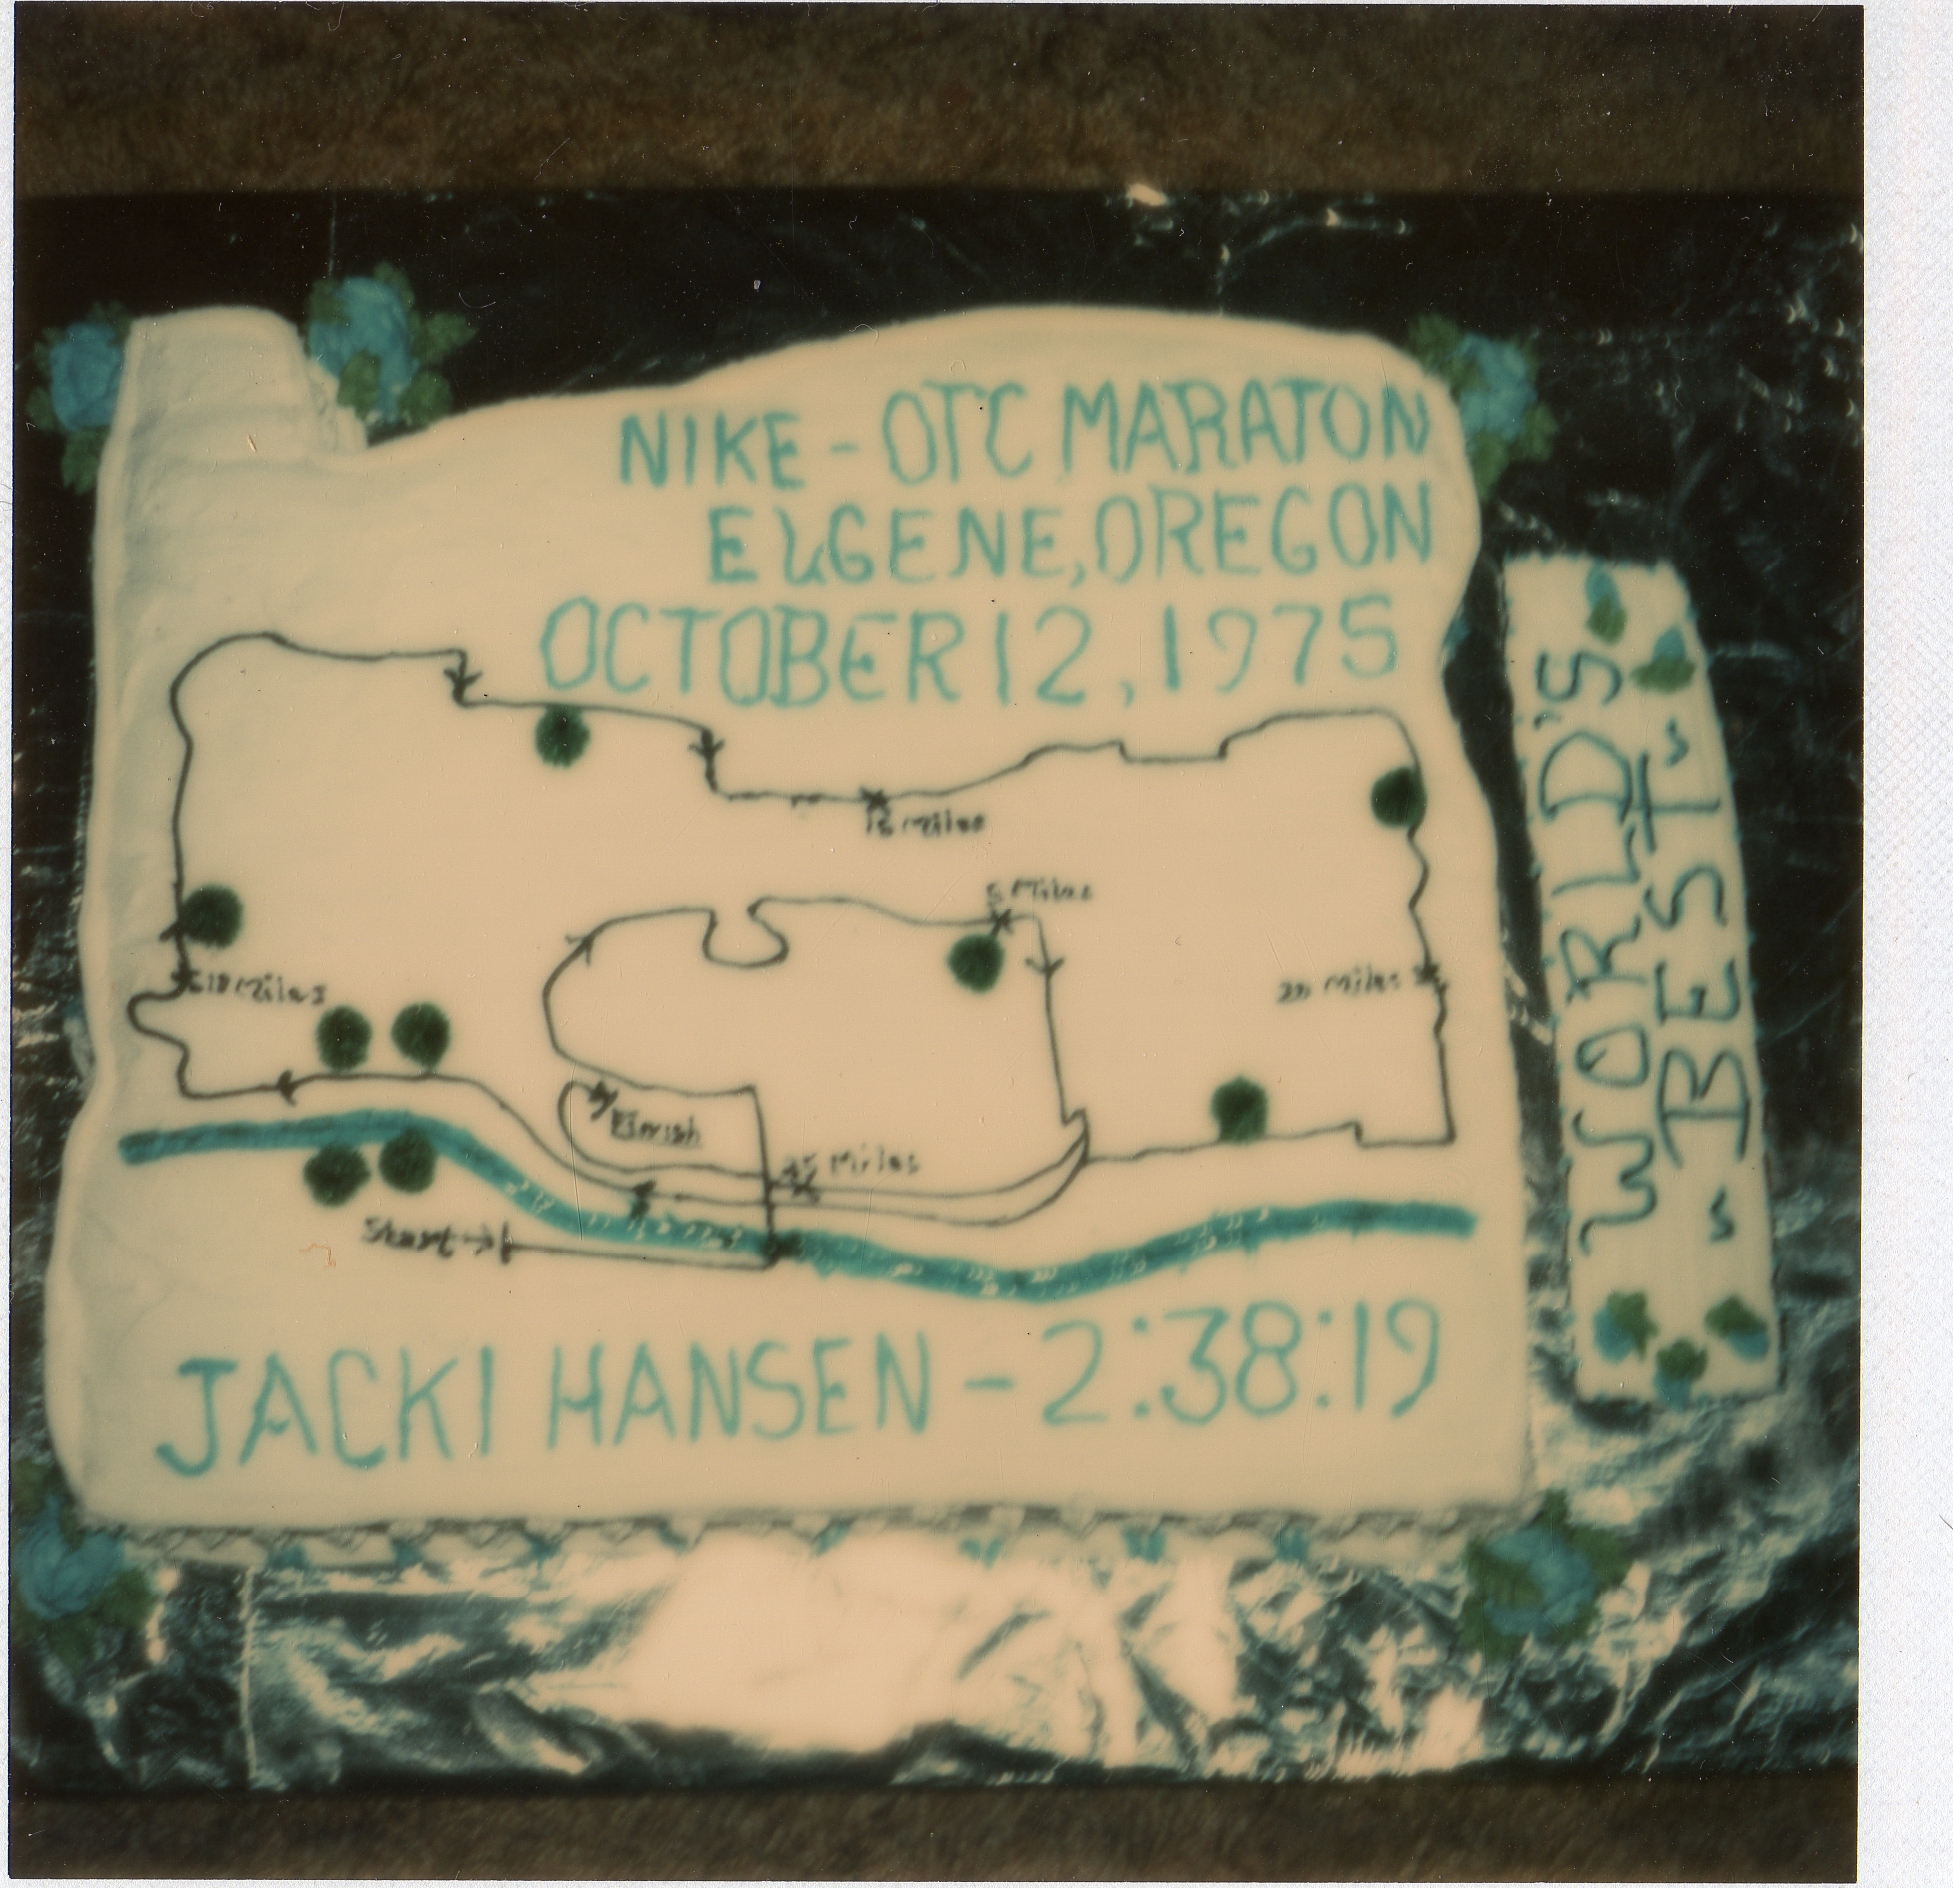 NIKE - OTC MARATON
EUGENE, OREGON
OCTOBER 12, 1975
15 Miles
5 Miles
20 Miles
10 Miles
Finish
25 Miles
Start
JACKI HANSEN - 2:38:19
WORLD'S
BEST